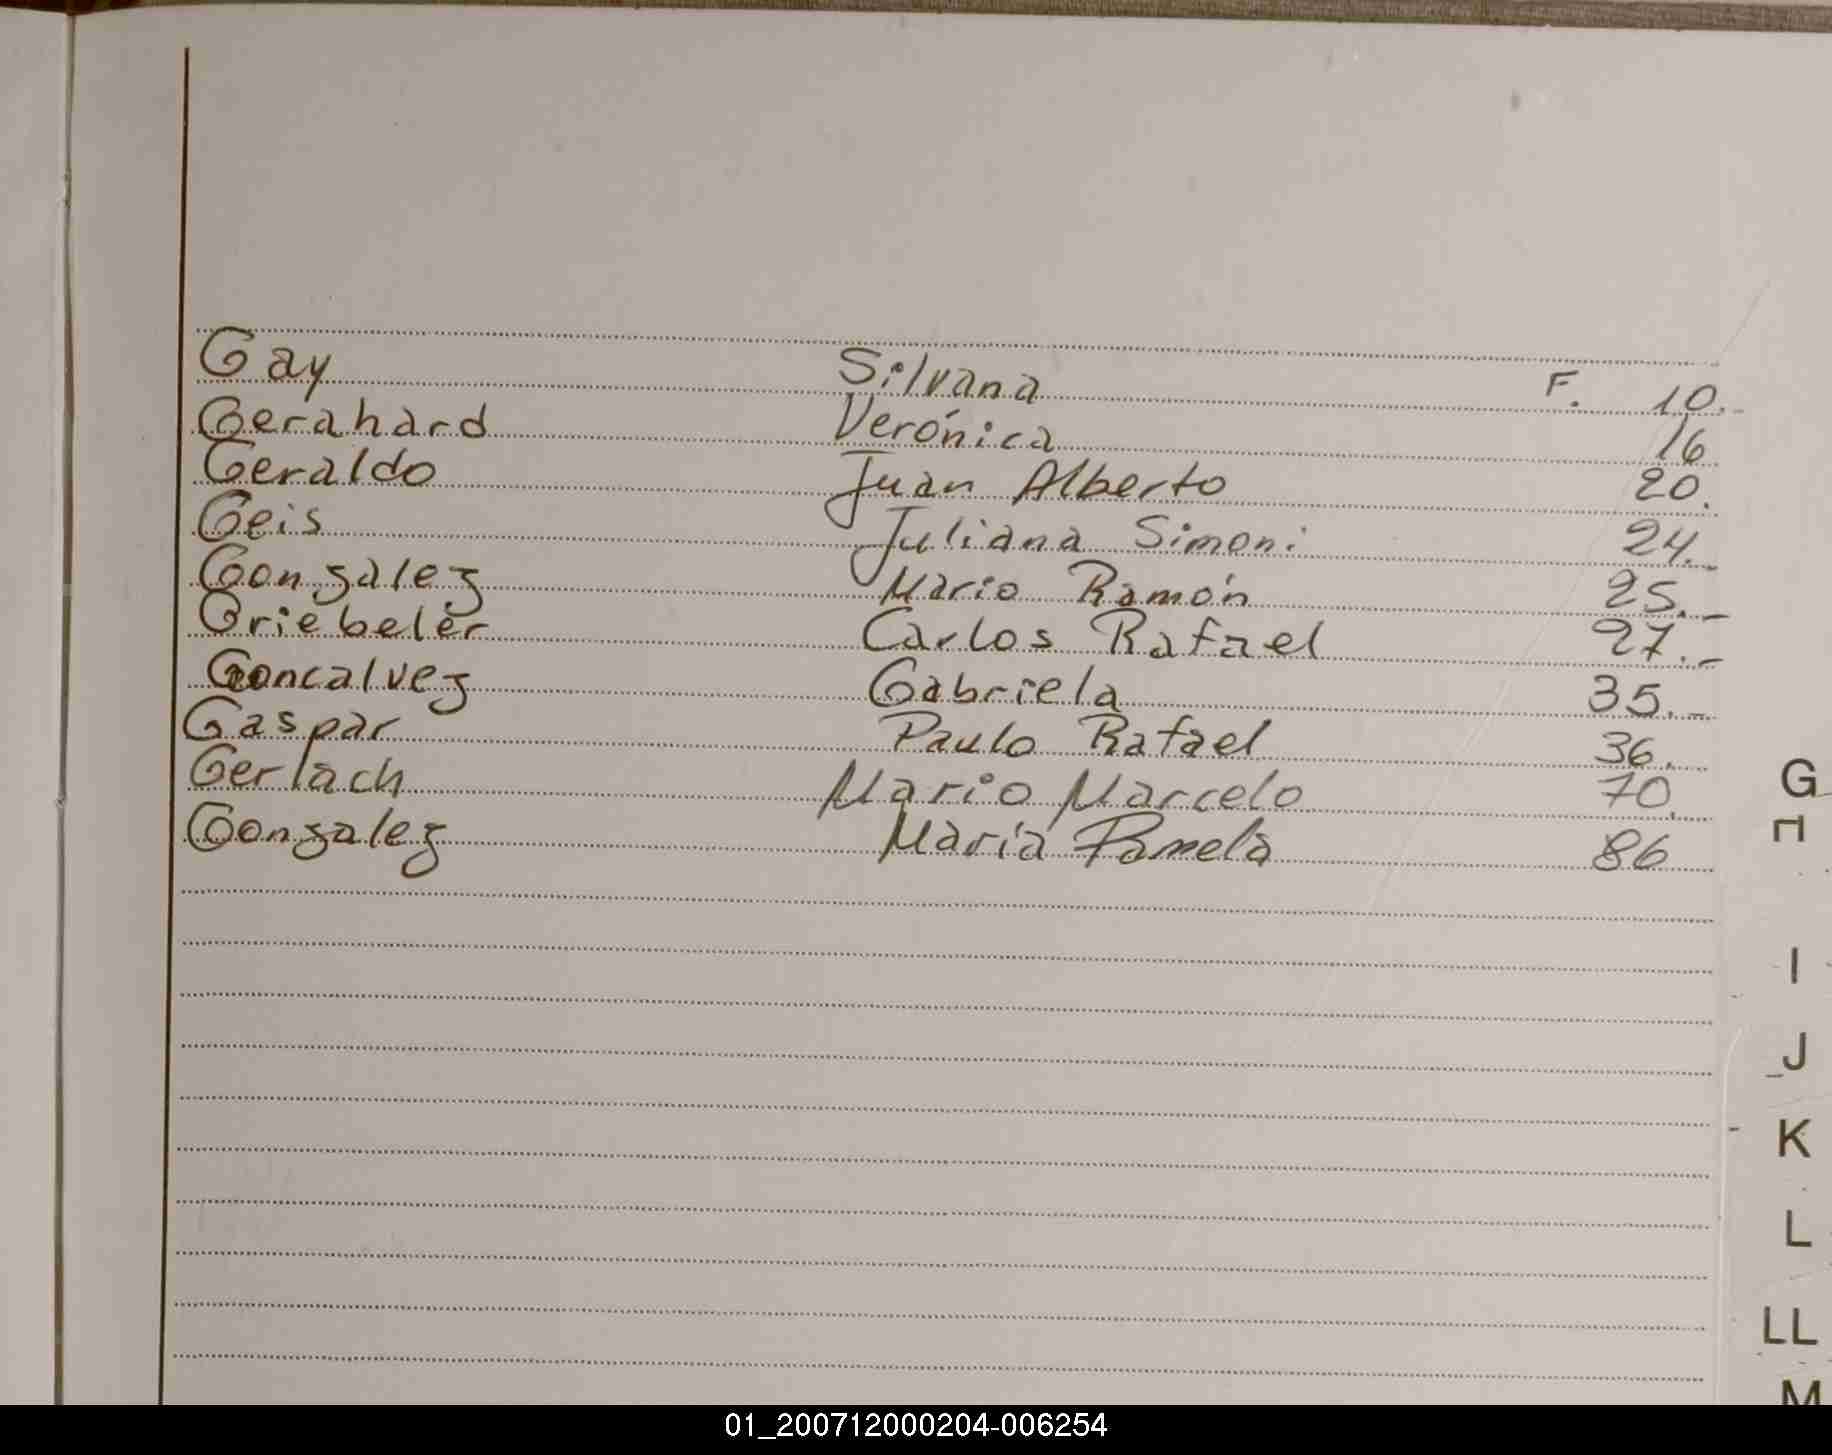 Gay Silvana F. 10.-
Gerahard Verónica 16
Geraldo Juan Alberto 20.
Geis Juliana Simoni 24.-
Gonzalez Mario Ramón 25.-
Griebeler Carlos Rafael 27.-
Goncalvez Gabriela 35.-
Gaspar Paulo Rafael 36.
Gerlach Mario Marcelo 70.
Gonzalez María Pamela 86
G
H
I
J
K
L
LL
M
01_200712000204-006254